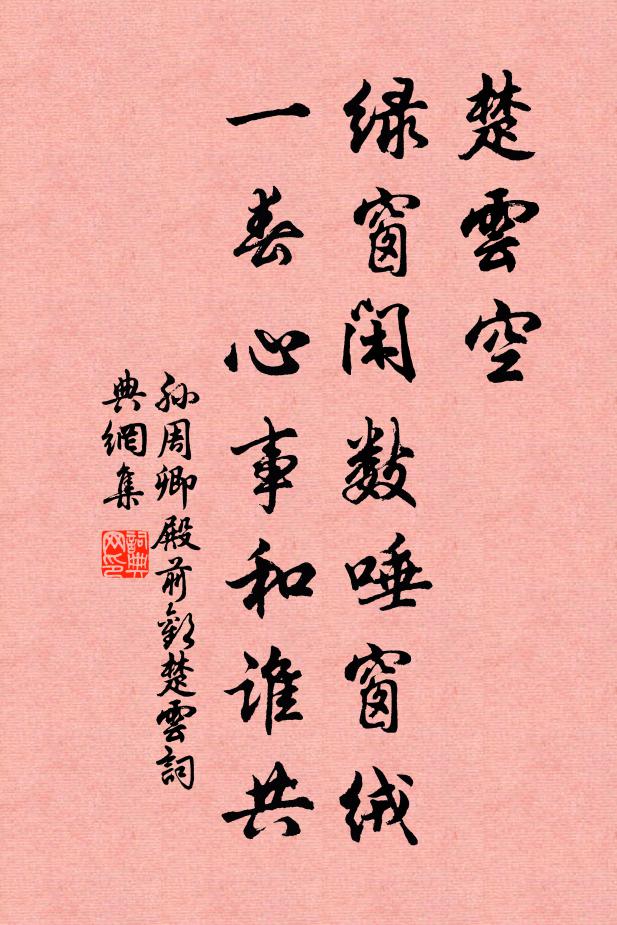 楚雲空
绿窗闲数唾窗绒
一春心事和谁共
孙周卿殿前歡楚雲詞
典網集
詞典网印